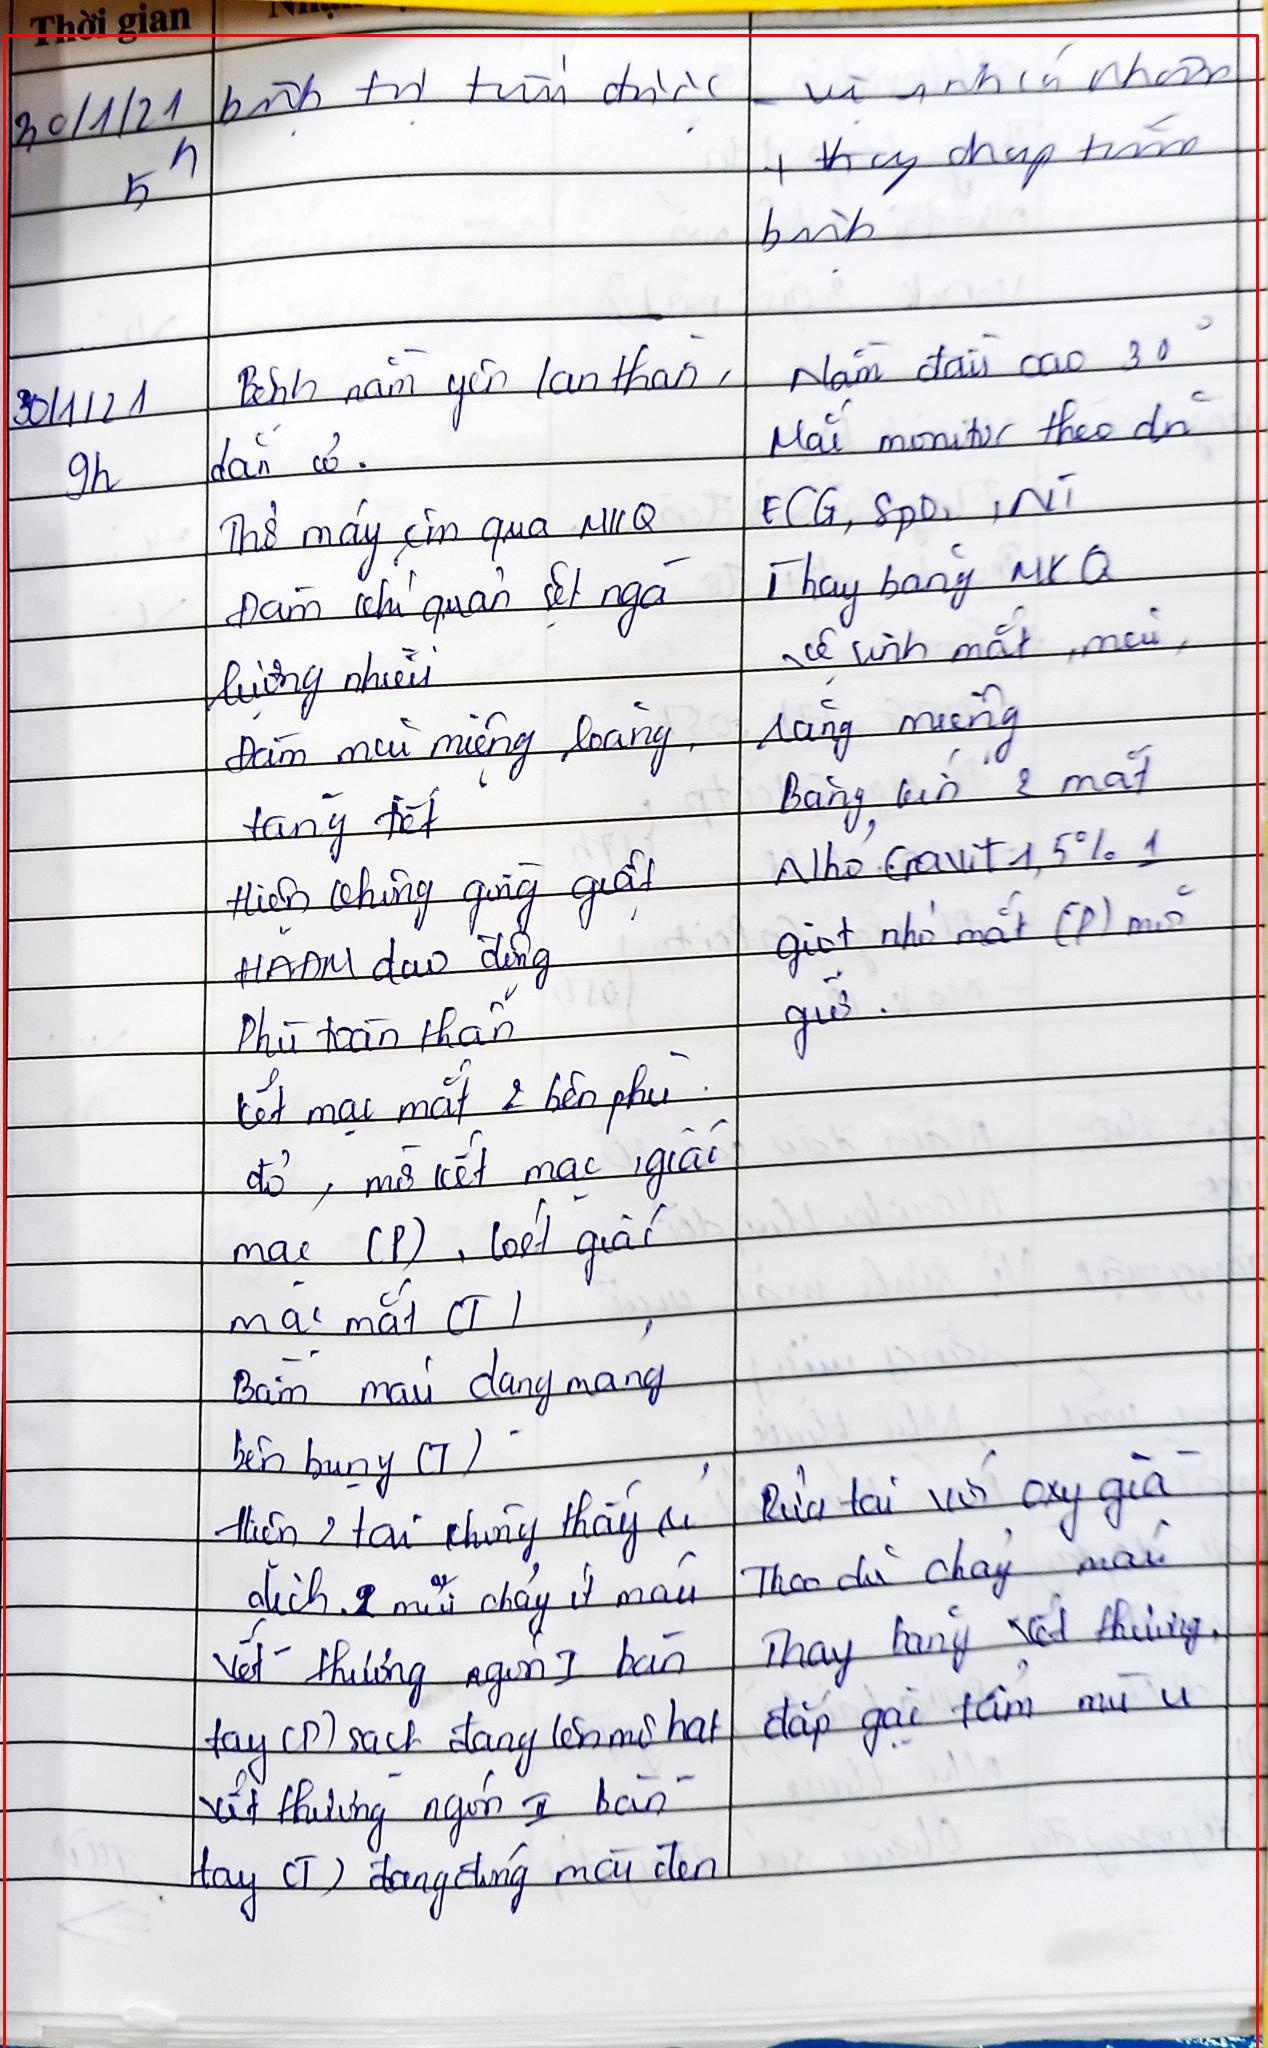 Thời gian
30/1/21
5h
bệnh tự tiểu được
- vệ sinh cá nhân
+ thay drap trước
bệnh
30/1/21
9h
Bệnh nằm yên lan than,
dẫn cơ.
Thở máy xin qua MKQ
Đàm khí quản sệt ngà
lượng nhiều
Đàm mũi miệng loãng,
tăng tiết
Hiện không gồng giật
HAĐM dao động
Phù toàn thân
kết mạc mắt 2 bên phù
đỏ, mờ kết mạc, giác
mạc (P), loét giác
mạc mắt (T)
Bầm máu dạng mảng
bên bụng (T)
Hiện 2 tai không thấy rỉ
dịch, 2 mũi chảy ít máu
Vết thương ngón I bàn
tay (P) sạch đang lên mô hạt
Vết thương ngón I bàn
tay (T) đang đóng mài đen
Nằm đầu cao 30°
Mắc monitor theo dõi
ECG, SpO₂, NT
Thay băng MKQ
vệ sinh mắt, mũi,
răng miệng
Băng kín 2 mắt
Nhỏ Cravit 1,5% 1
giọt nhỏ mắt (P) mỗi
giờ.
Rửa tai với oxy già
Theo dõi chảy máu
Thay băng vết thương,
đắp gạc tẩm